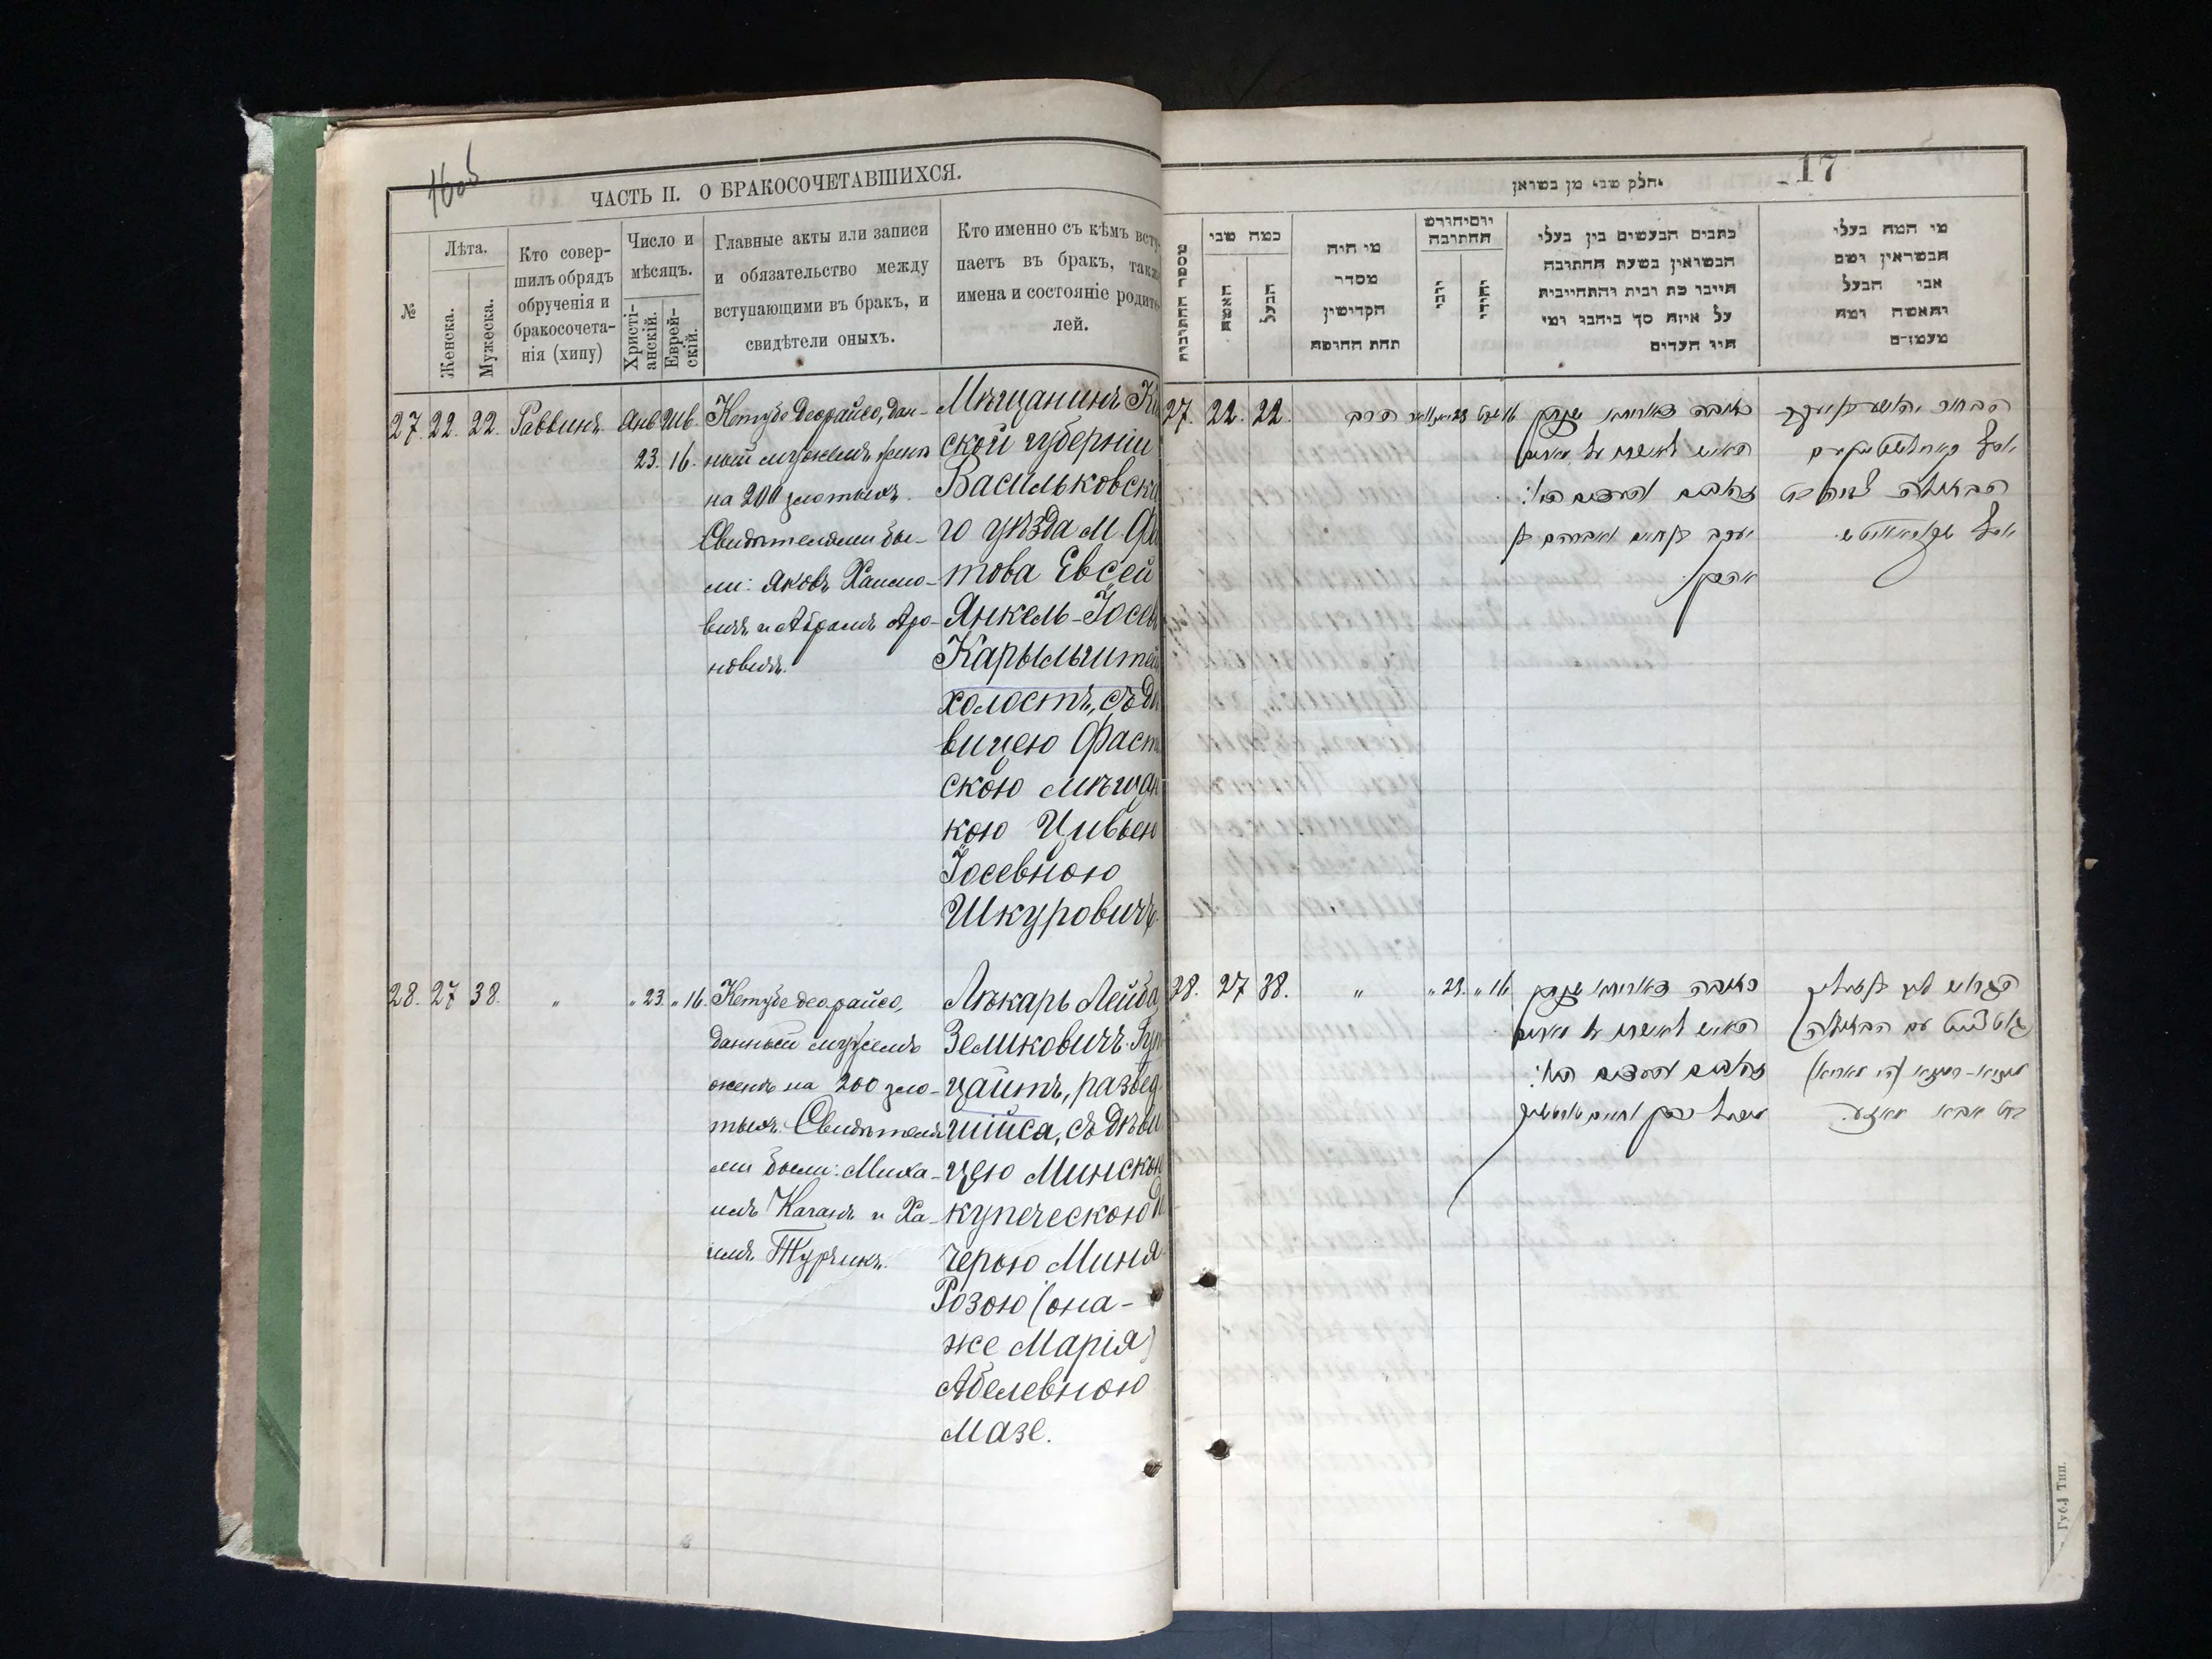 16об
ЧАСТЬ II. О БРАКОСОЧЕТАВШИХСЯ.
№
Лѣта.
Женска.
Мужеска.
Кто совер-
шилъ обрядъ
обрученія и
бракосочета-
нія (хипу)
Число и
мѣсяцъ.
Христі-
анскій.
Еврей-
скій.
Главные акты или записи
и обязательство между
вступающими въ бракъ, и
свидѣтели оныхъ.
Кто именно съ кѣмъ всту-
паетъ въ бракъ, также
имена и состояніе родите-
лей.
27. 22. 22. Раввинъ. Янв 23. Шв. 16.
Кетубе деорайсо, дан-
ный мужемъ женѣ
на 200 злотыхъ.
Свидѣтелями бы-
ли: Яковъ Хаимо-
вичъ и Абрамъ Аро-
новичъ.
Мѣщанинъ Кі
ской губерніи
Васильковска
го уѣзда м. Фа
това Евсей
Янкель-Іосев
Карыльштей
холостъ, съ дѣ
вицею Фаст
скою мѣщан
кою Цивьею
Іосевною
Шкуровичъ.
28. 27 38. " " 23. " 16.
Кетубе деорайсо,
данный мужемъ
женѣ на 200 зло-
тыхъ. Свидѣтеля
ми были: Миха-
илъ Каганъ и Ха-
имъ Турчикъ.
Лѣкарь Лейба
Зеликовичъ Гу
цайтъ, развед
шійся, съ дѣви
цею Минскою
купеческою до
черью Миня
Розою (она-
же Марія)
Абелевною
Мазе.
17
חלק שני מן נשואין
מספר החתונות
כמה שני
האשה
הבעל
מי היה
מסדר
הקדישין
תחת החופה
יום וחודש
החתונה
נוצרי
יהודי
כתבים הנעשים בין בעלי
הנשואין בשעת החתונה
היינו כת ובית והתחייבות
על איזה סך ביחנו ומי
היו העדים
מי המה בעלי
הנשואין ושם
אבי הבעל
והאשה ומה
מעמדם
27. 22. 22. הרב 23 16
כתובה דאורייתא שנתן
האיש לאשתו על מאתים
זהובים והעדים היו:
יעקב בן חיים ואברהם בן
אהרן.
28. 27 38. " " 23. " 16
כתובה דאורייתא שנתן
האיש לאשתו על מאתים
זהובים והעדים היו:
Губ. Тип.